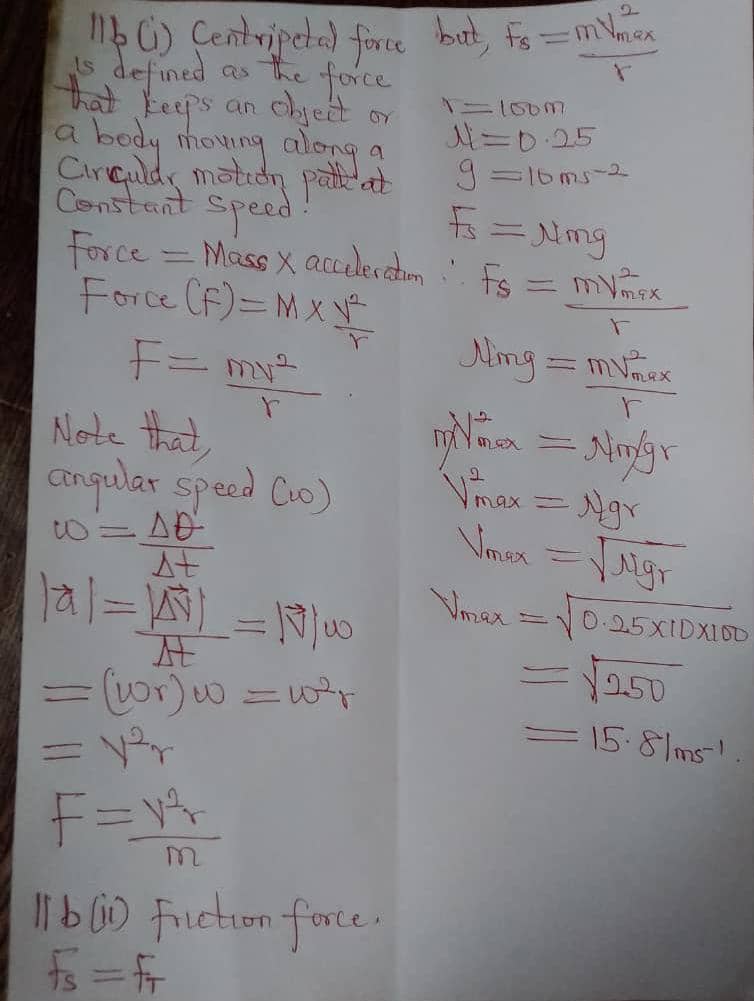 11b(i) Centripetal force
is defined as the force
that keeps an object or
a body moving along a
Circular motion path at
Constant Speed.
Force = Mass x acceleration
Force (F) = M x v²/r
F = mv²/r.
Note that,
angular speed (ω)
ω = Δθ/Δt
|a⃗| = |Δv⃗|/Δt = |v⃗|ω
= (ωr)ω = ω²r
= v²r
F = v²r/m
11b(ii) Friction force.
Fs = FT
but, Fs = mv²max/r
r = 100m
μ = 0.25
g = 10ms-2
Fs = μmg
∴ Fs = mv²max/r
μmg = mv²max/r
mv²max = μmgr
V²max = μgr
Vmax = √μgr
Vmax = √0.25x10x100
= √250
= 15.81ms-1.